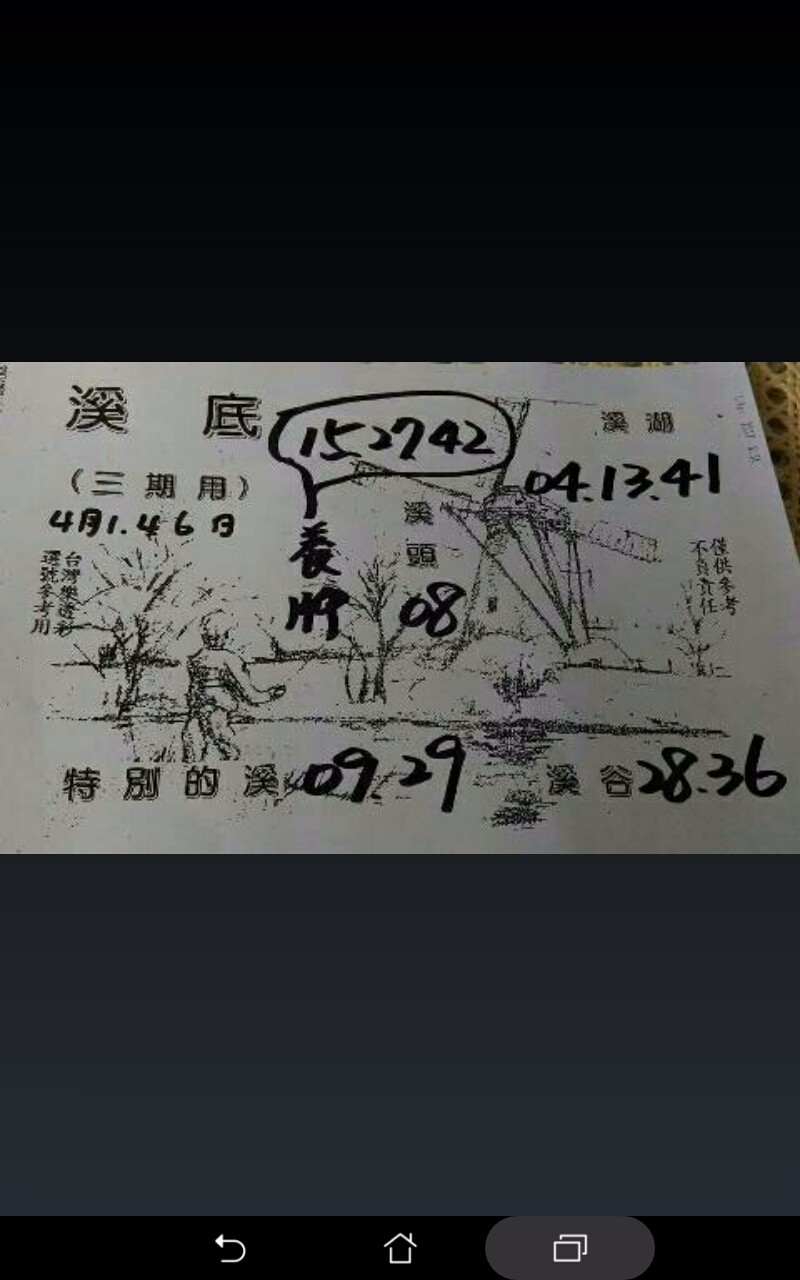 溪底
152742
溪湖
04.13.41
（三期用）
4月1.4.6日
養牌
溪頭
08
台灣樂透彩
選號參考用
僅供參考
不負責任
特別的溪 09.29
溪谷 28.36